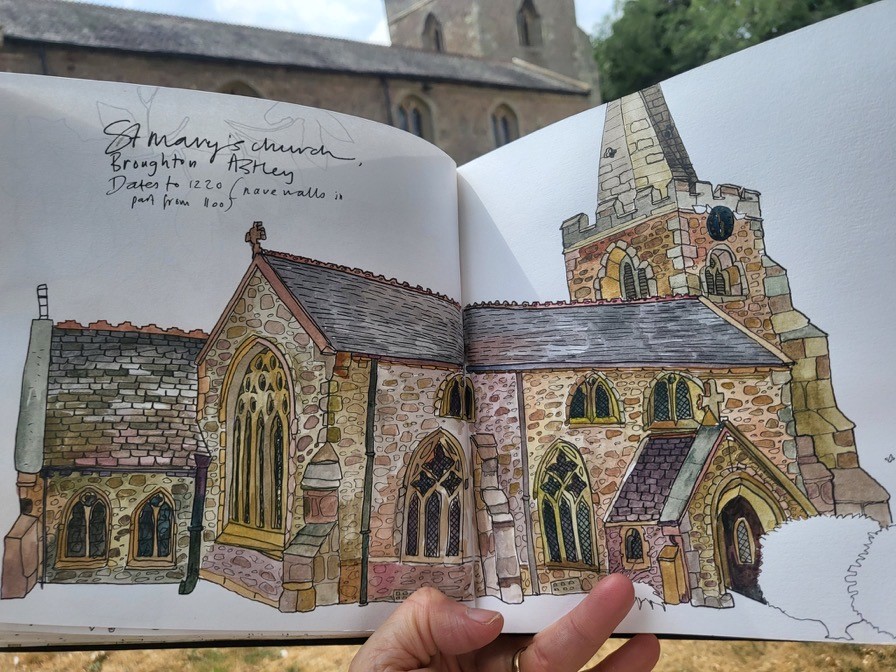 St Mary's church,
Broughton Astley
Dates to 1220 (nave walls in
part from 1100)